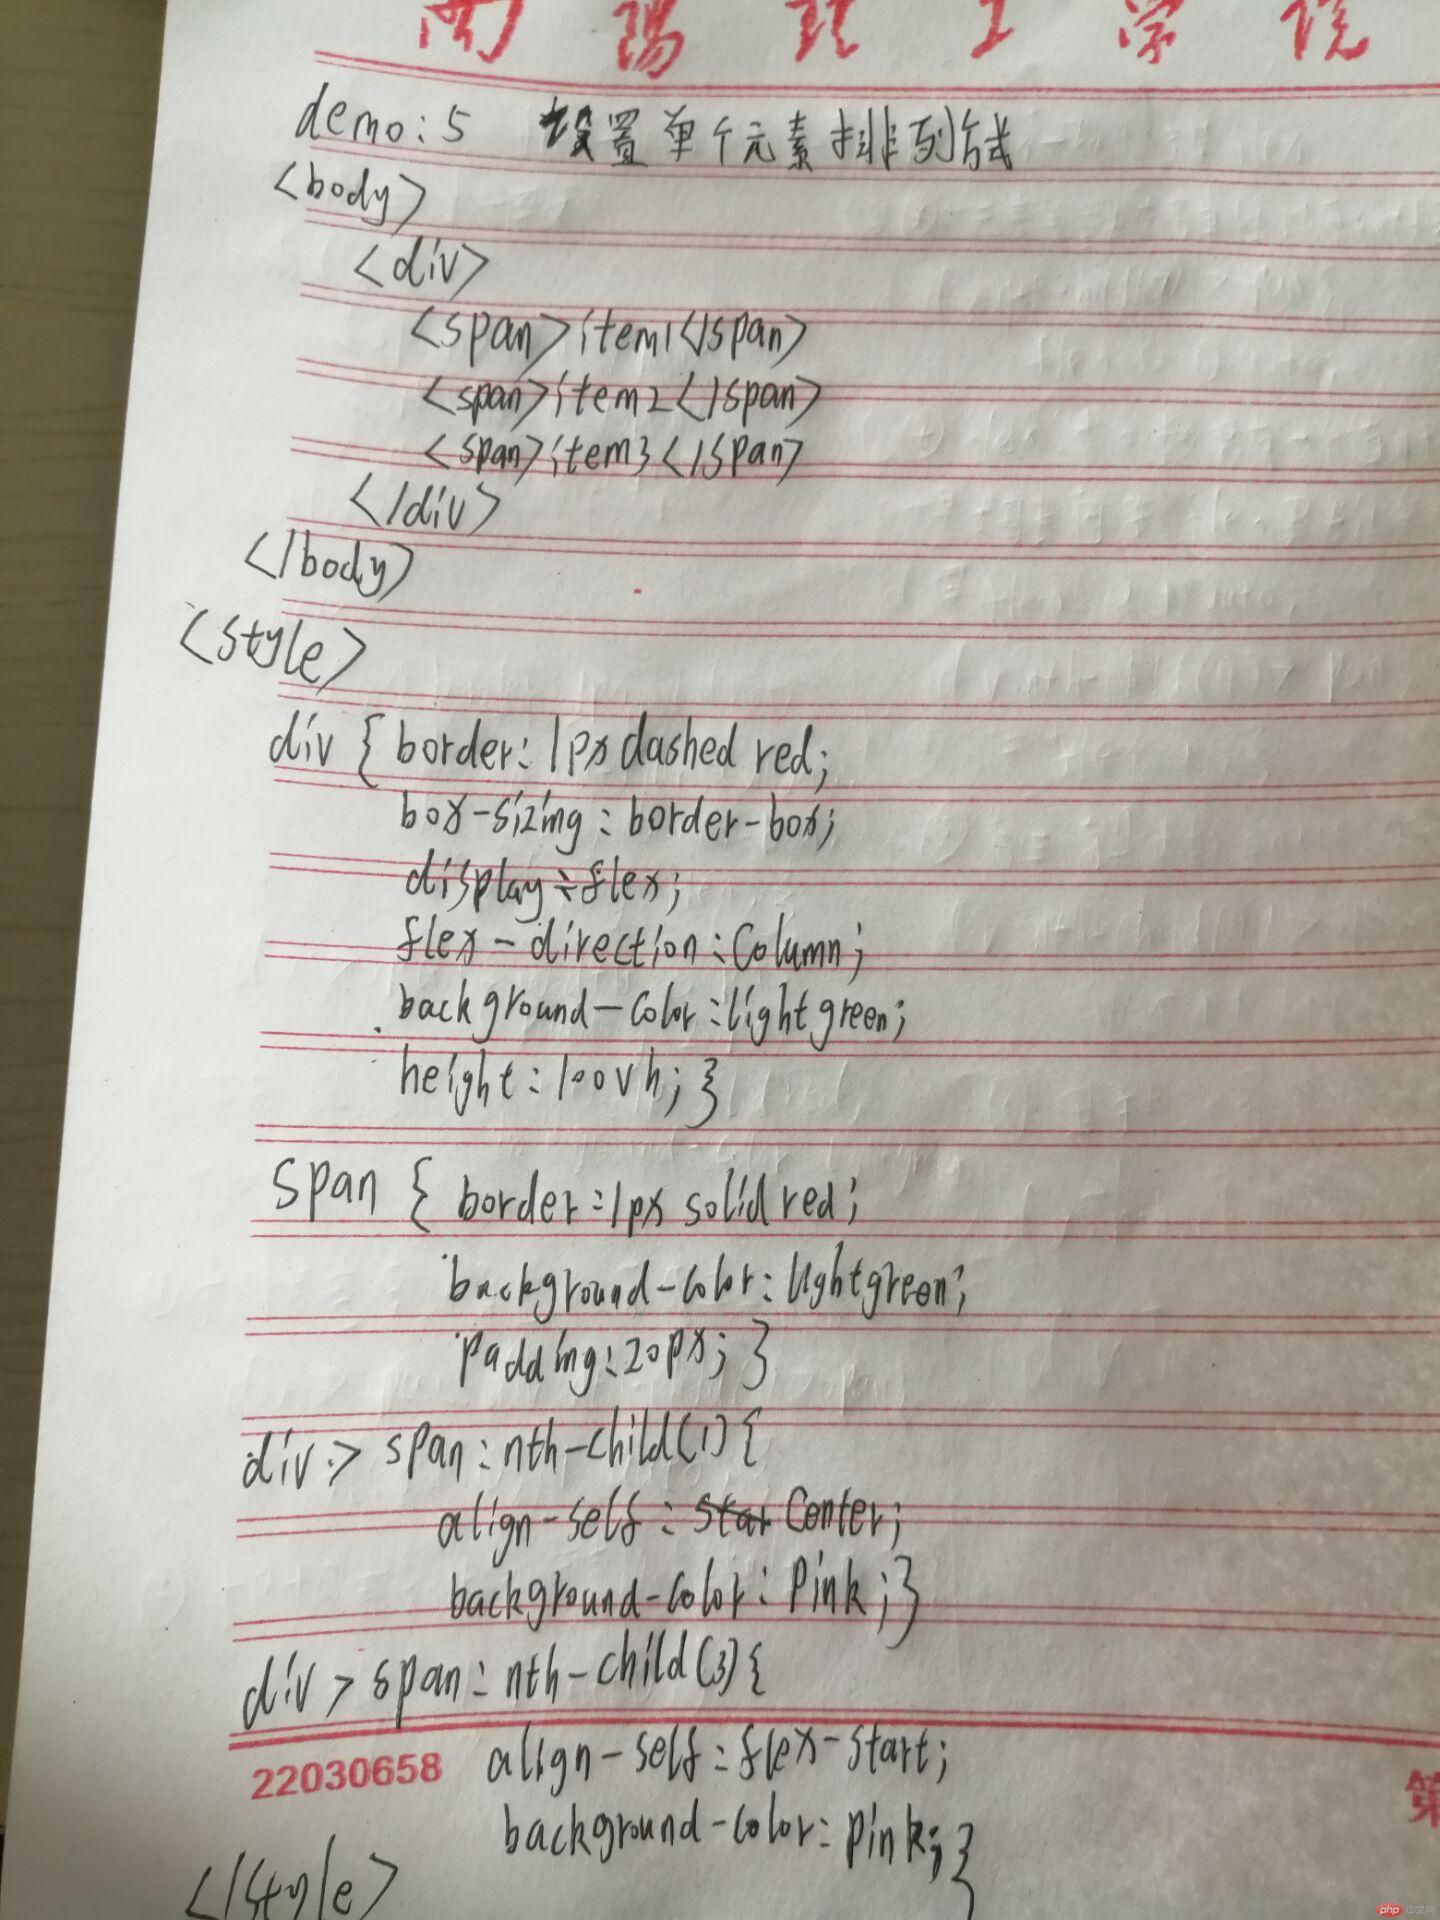 南陽理工学院
demo:5 设置单个元素排列方式
<body>
<div>
<span>item1</span>
<span>item2</span>
<span>item3</span>
</div>
</body>
<style>
div { border: 1px dashed red;
box-sizing: border-box;
display: flex;
flex-direction: Column;
background-color: lightgreen;
height: 100vh; }
span { border: 1px solid red;
background-color: lightgreen;
padding: 20px; }
div > span: nth-child(1) {
align-self: Center;
background-color: Pink; }
div > span: nth-child(3) {
align-self: flex-start;
22030658
第
background-color: pink; }
</style>
php 中文网